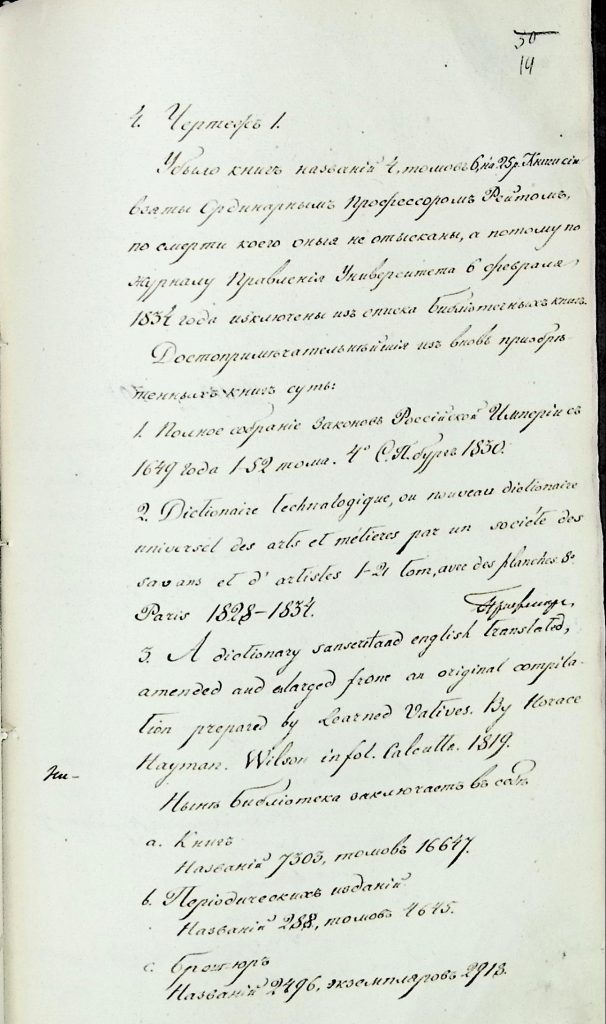 30
14
4. Чертежъ 1.
Убыло книгъ названій 4, томовъ 6, на 25 р. Книги сіи
взяты Ординарнымъ Профессоромъ Рейтомъ,
по смерти коего оныя не отысканы, а потому по
журналу Правленія Университета 6 февраля
1834 года изключены изъ списка библіотечныхъ книгъ.
Достопримѣчательнѣйшія изъ вновь пріобрѣ-
тенныхъ книгъ суть:
1. Полное собраніе Законовъ Россійской Имперіи съ
1649 года 1-52 тома. 4° С.П.бургъ 1830.
2. Dictionaire technalogique, ou nouveau dictionaire
universel des arts et métieres par un société des
savans et d'artistes 1-21 tom, avec des planches. 8°
Paris 1828-1834.
3. A dictionary sanscritand english translated,
amended and enlarged frone an original compila-
tion prepared by Learned Natives. By Horace
Hayman. Wilson in fol. Calcutta. 1819.
Нынѣ библіотека заключаетъ въ себѣ
a. Книгъ
Названій 7303, томовъ 16647.
b. Періодическихъ изданій
Названій 288, томовъ 4645.
c. Брошюръ
Названій 2496, экземпляровъ 2913.